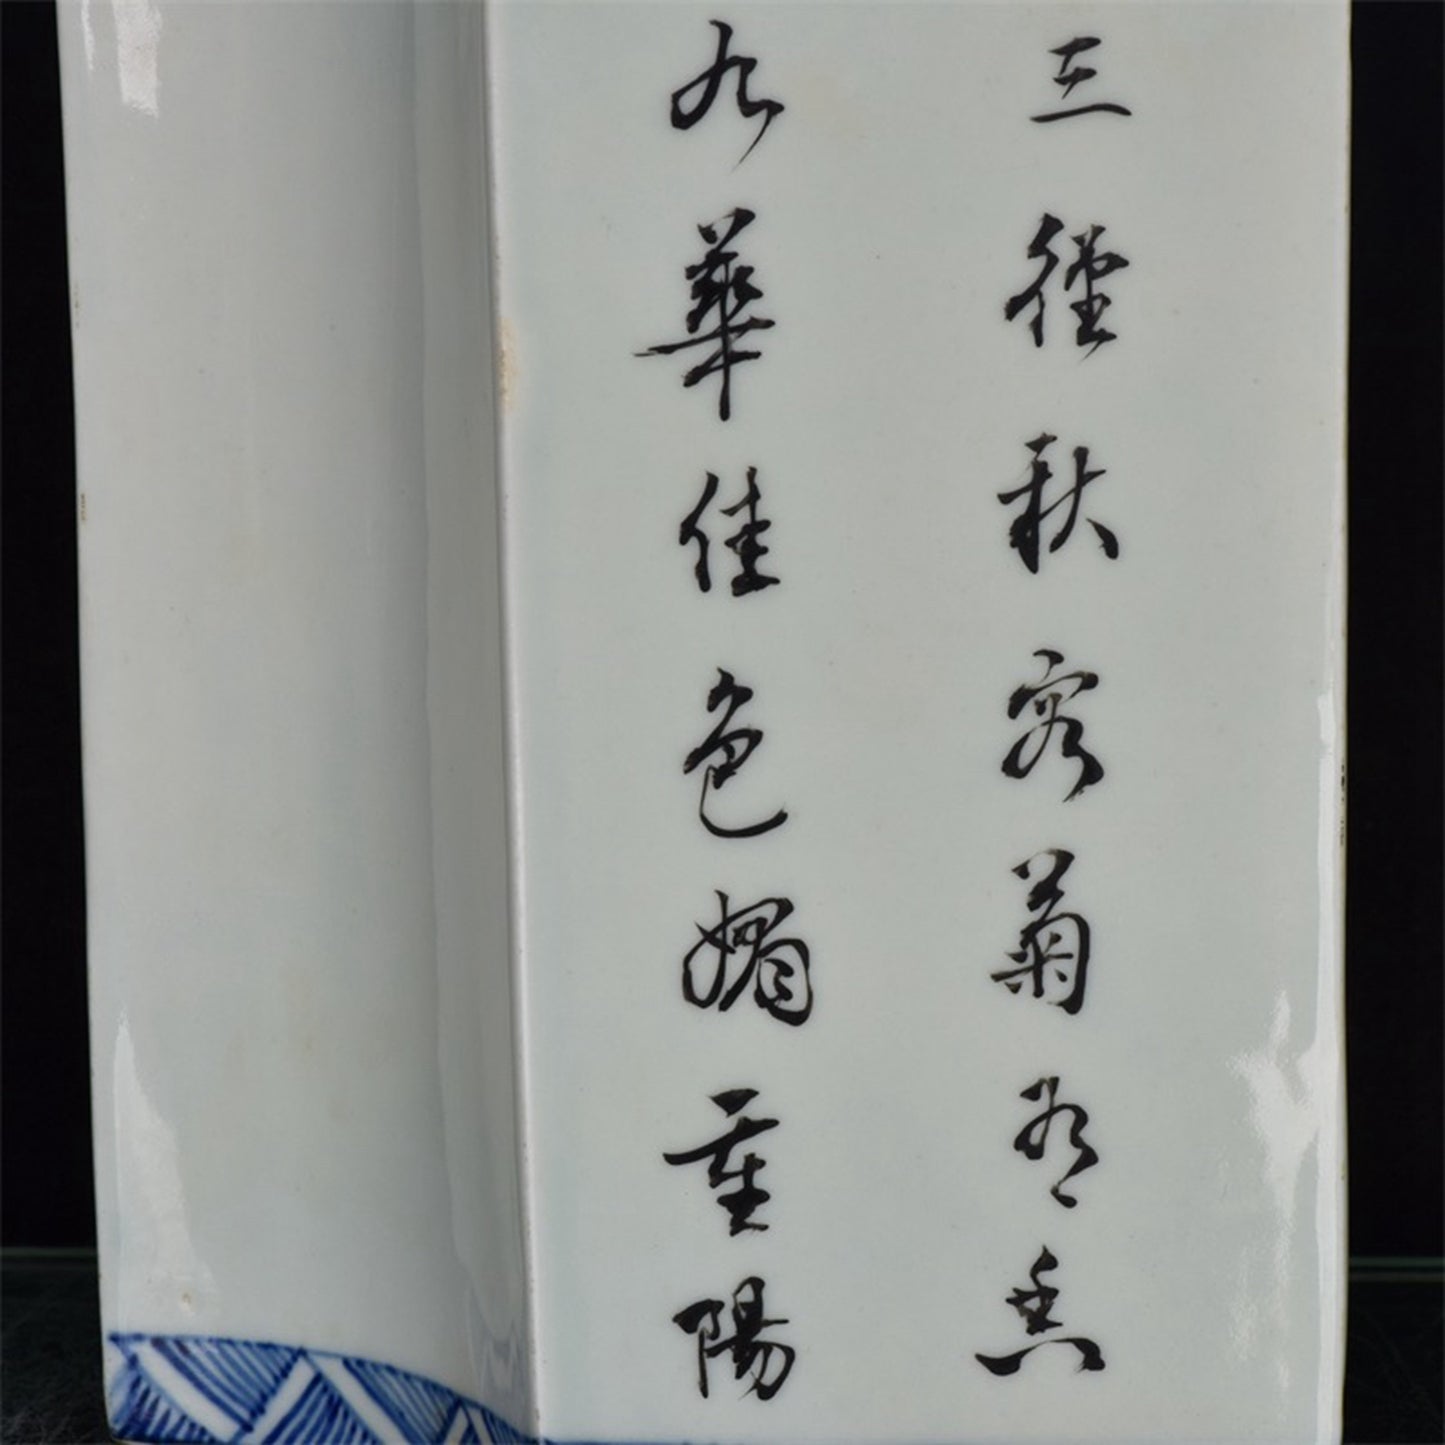 三徑秋容菊有香
九華佳色媚重陽